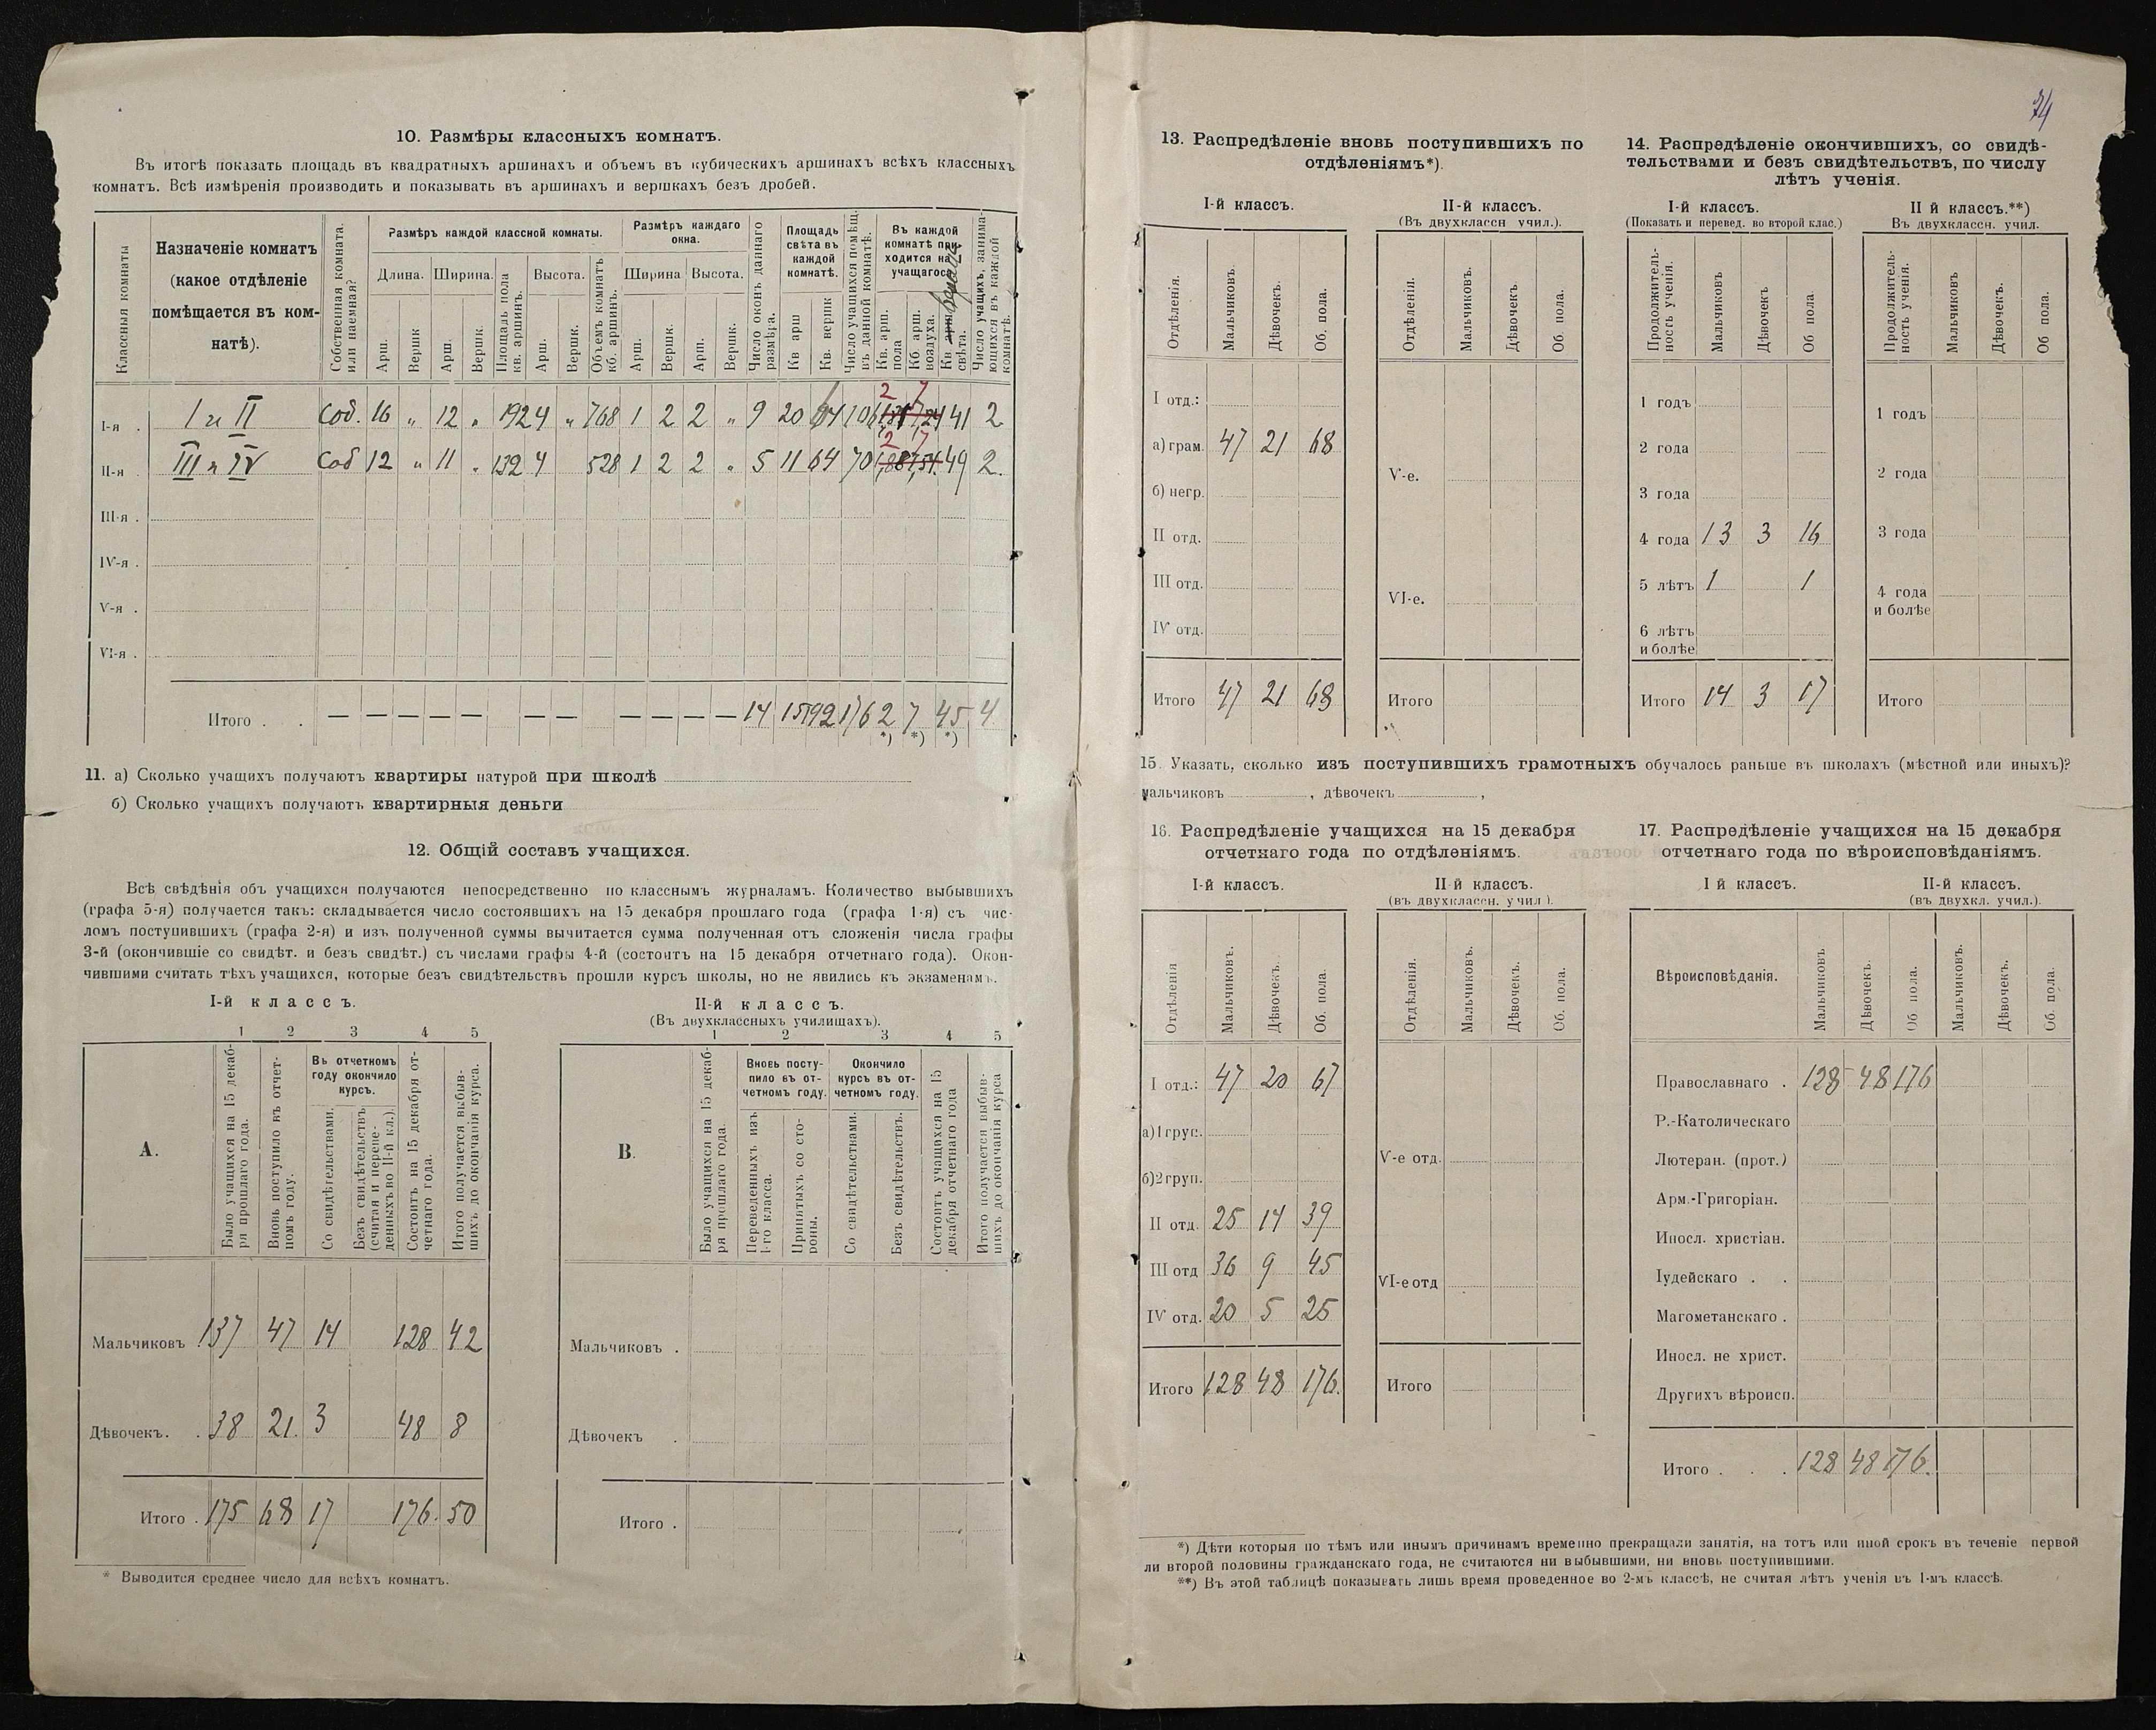 74
10. Размѣры классныхъ комнатъ.
Въ итогѣ показать площадь въ квадратныхъ аршинахъ и объемъ въ кубическихъ аршинахъ всѣхъ классныхъ
комнатъ. Всѣ измѣренія производить и показывать въ аршинахъ и вершкахъ безъ дробей.
Классныя комнаты
Назначеніе комнатъ
(какое отдѣленіе
помѣщается въ ком-
натѣ).
Собственная комната,
или наемная?
Размѣръ каждой классной комнаты.
Длина. Ширина. Высота.
Арш. Вершк Арш. Вершк.
Площадь пола
кв. аршинъ.
Арш. Вершк.
Объемъ комнатъ
кб. аршинъ.
Размѣръ каждаго
окна.
Ширина Высота.
Арш. Вершк. Арш. Вершк.
Число оконъ даннаго
размѣра.
Площадь
свѣта въ
каждой
комнатѣ.
Кв арш Кв. вершк
Число учащихся помѣщ.
въ данной комнатѣ.
Въ каждой
комнатѣ при-
ходится на
учащагося
Кв. арш.
пола
Кб. арш.
воздуха.
Кв. арш
свѣта.
Число учащихъ, занима-
ющихся въ каждой
комнатѣ.
2 7
I-я . I и II Соб. 16 „ 12 „ 192 4 „ 768 1 2 2 „ 9 20 64 106 41 2
2 7
II-я . III и IV Соб 12 „ 11 „ 132 4 528 1 2 2 „ 5 11 64 70 49 2.
III-я .
IV-я .
V-я .
VI-я .
Итого . . — — — — — — — — — — — 14 176 2 7 45 4
*) *) *)
11. а) Сколько учащихъ получаютъ квартиры натурой при школѣ
б) Сколько учащихъ получаютъ квартирныя деньги
12. Общій составъ учащихся.
Всѣ свѣдѣнія объ учащихся получаются непосредственно по класснымъ журналамъ. Количество выбывшихъ
(графа 5-я) получается такъ: складывается число состоявшихъ на 15 декабря прошлаго года (графа 1-я) съ чис-
ломъ поступившихъ (графа 2-я) и изъ полученной суммы вычитается сумма полученная отъ сложенія числа графы
3-й (окончившіе со свидѣт. и безъ свидѣт.) съ числами графы 4-й (состоитъ на 15 декабря отчетнаго года). Окон-
чившими считать тѣхъ учащихся, которые безъ свидѣтельствъ прошли курсъ школы, но не явились къ экзаменамъ.
I-й классъ.
1 2 3 4 5
А.
Было учащихся на 15 декаб-
ря прошлаго года.
Вновь поступило въ отчет-
номъ году.
Въ отчетномъ
году окончило
курсъ.
Со свидѣтельствами.
Безъ свидѣтельствъ
(считая и переве-
денныхъ во II-й кл.).
Состоитъ на 15 декабря от-
четнаго года.
Итого получается выбыв-
шихъ до окончанія курса.
Мальчиковъ . 137 47 14 128 42
Дѣвочекъ. . 38 21. 3 48 8
Итого . 175 68 17 176. 50
II-й классъ.
(Въ двухклассныхъ училищахъ).
1 2 3 4 5
В.
Было учащихся на 15 декаб-
ря прошлаго года.
Вновь посту-
пило въ от-
четномъ году.
Переведенныхъ изъ
1-го класса.
Принятыхъ со сто-
роны.
Окончило
курсъ въ от-
четномъ году.
Со свидѣтельствами.
Безъ свидѣтельствъ.
Состоитъ учащихся на 15
декабря отчетнаго года
Итого получается выбыв-
шихъ до окончанія курса
Мальчиковъ .
Дѣвочекъ .
Итого .
* Выводится среднее число для всѣхъ комнатъ.
13. Распредѣленіе вновь поступившихъ по
отдѣленіямъ*).
I-й классъ.
Отдѣленія. Мальчиковъ. Дѣвочекъ. Об. пола.
I отд.:
а) грам. 47 21 68
б) негр.
II отд.
III отд.
IV отд.
Итого 47 21 68
II-й классъ.
(Въ двухклассн учил.).
Отдѣленія. Мальчиковъ. Дѣвочекъ. Об. пола.
V-е.
VI-е.
Итого
14. Распредѣленіе окончившихъ, со свидѣ-
тельствами и безъ свидѣтельствъ, по числу
лѣтъ ученія.
I-й классъ.
(Показать и перевед. во второй клас.)
Продолжитель-
ность ученія.
Мальчиковъ Дѣвочекъ Об пола.
1 годъ
2 года
3 года
4 года 13 3 16
5 лѣтъ 1 1
6 лѣтъ
и болѣе
Итого 14 3 17
II й классъ.**)
Въ двухклассн. учил.
Продолжитель-
ность ученія.
Мальчиковъ Дѣвочекъ. Об пола.
1 годъ
2 года
3 года
4 года
и болѣе
Итого
15. Указать, сколько изъ поступившихъ грамотныхъ обучалось раньше въ школахъ (мѣстной или иныхъ)?
мальчиковъ , дѣвочекъ ,
16. Распредѣленіе учащихся на 15 декабря
отчетнаго года по отдѣленіямъ.
I-й классъ.
Отдѣленія Мальчиковъ. Дѣвочекъ. Об. пола.
I отд.: 47 20 67
а)1 груп.
б)2 груп.
II отд. 25 14 39
III отд 36 9 45
IV отд. 20 5 25
Итого 128 48 176.
II-й классъ.
(въ двухклассн. учил.).
Отдѣленія. Мальчиковъ. Дѣвочекъ. Об. пола.
V-е отд.
VI-е отд
Итого
17. Распредѣленіе учащихся на 15 декабря
отчетнаго года по вѣроисповѣданіямъ.
I й классъ. II-й классъ.
(въ двухкл. учил.).
Вѣроисповѣданія. Мальчиковъ. Дѣвочекъ. Об пола. Мальчиковъ. Дѣвочекъ. Об. пола.
Православнаго . 128 48 176
Р.-Католическаго
Лютеран. (прот.)
Арм.-Григоріан.
Иносл. христіан.
Іудейскаго . .
Магометанскаго .
Иносл. не христ.
Другихъ вѣроисп.
Итого . . . 128 48 176.
*) Дѣти которыя по тѣмъ или инымъ причинамъ временно прекращали занятія, на тотъ или иной срокъ въ теченіе первой
ли второй половины гражданскаго года, не считаются ни выбывшими, ни вновь поступившими.
**) Въ этой таблицѣ показывать лишь время проведенное во 2-мъ классѣ, не считая лѣтъ ученія въ 1-мъ классѣ.